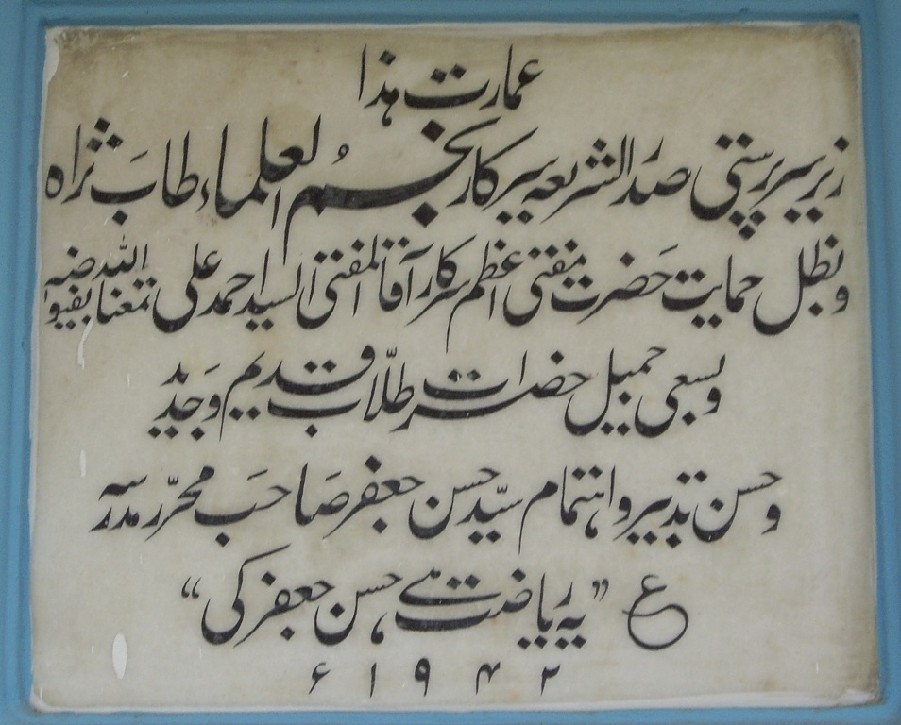 عمارت ہذا
زیر سرپرستی صدرُ الشریعہ سرکار نجمُ العلماء طابَ ثراہ
و بظل حمایت حَضرت مفتی اعظم سرکار آقا المفتی السید احمد علی متعنا اللہ بفیوضہ
و بسعی جمیل حضرات طلّاب قدیم و جَدید
و حسن تدبیر و اہتمام سیّد حسن جعفر صَاحَب محرّر مدرسہ
ع ”یہ ریاضت ہے حسن جعفر کی“
۱۹۴۲ء